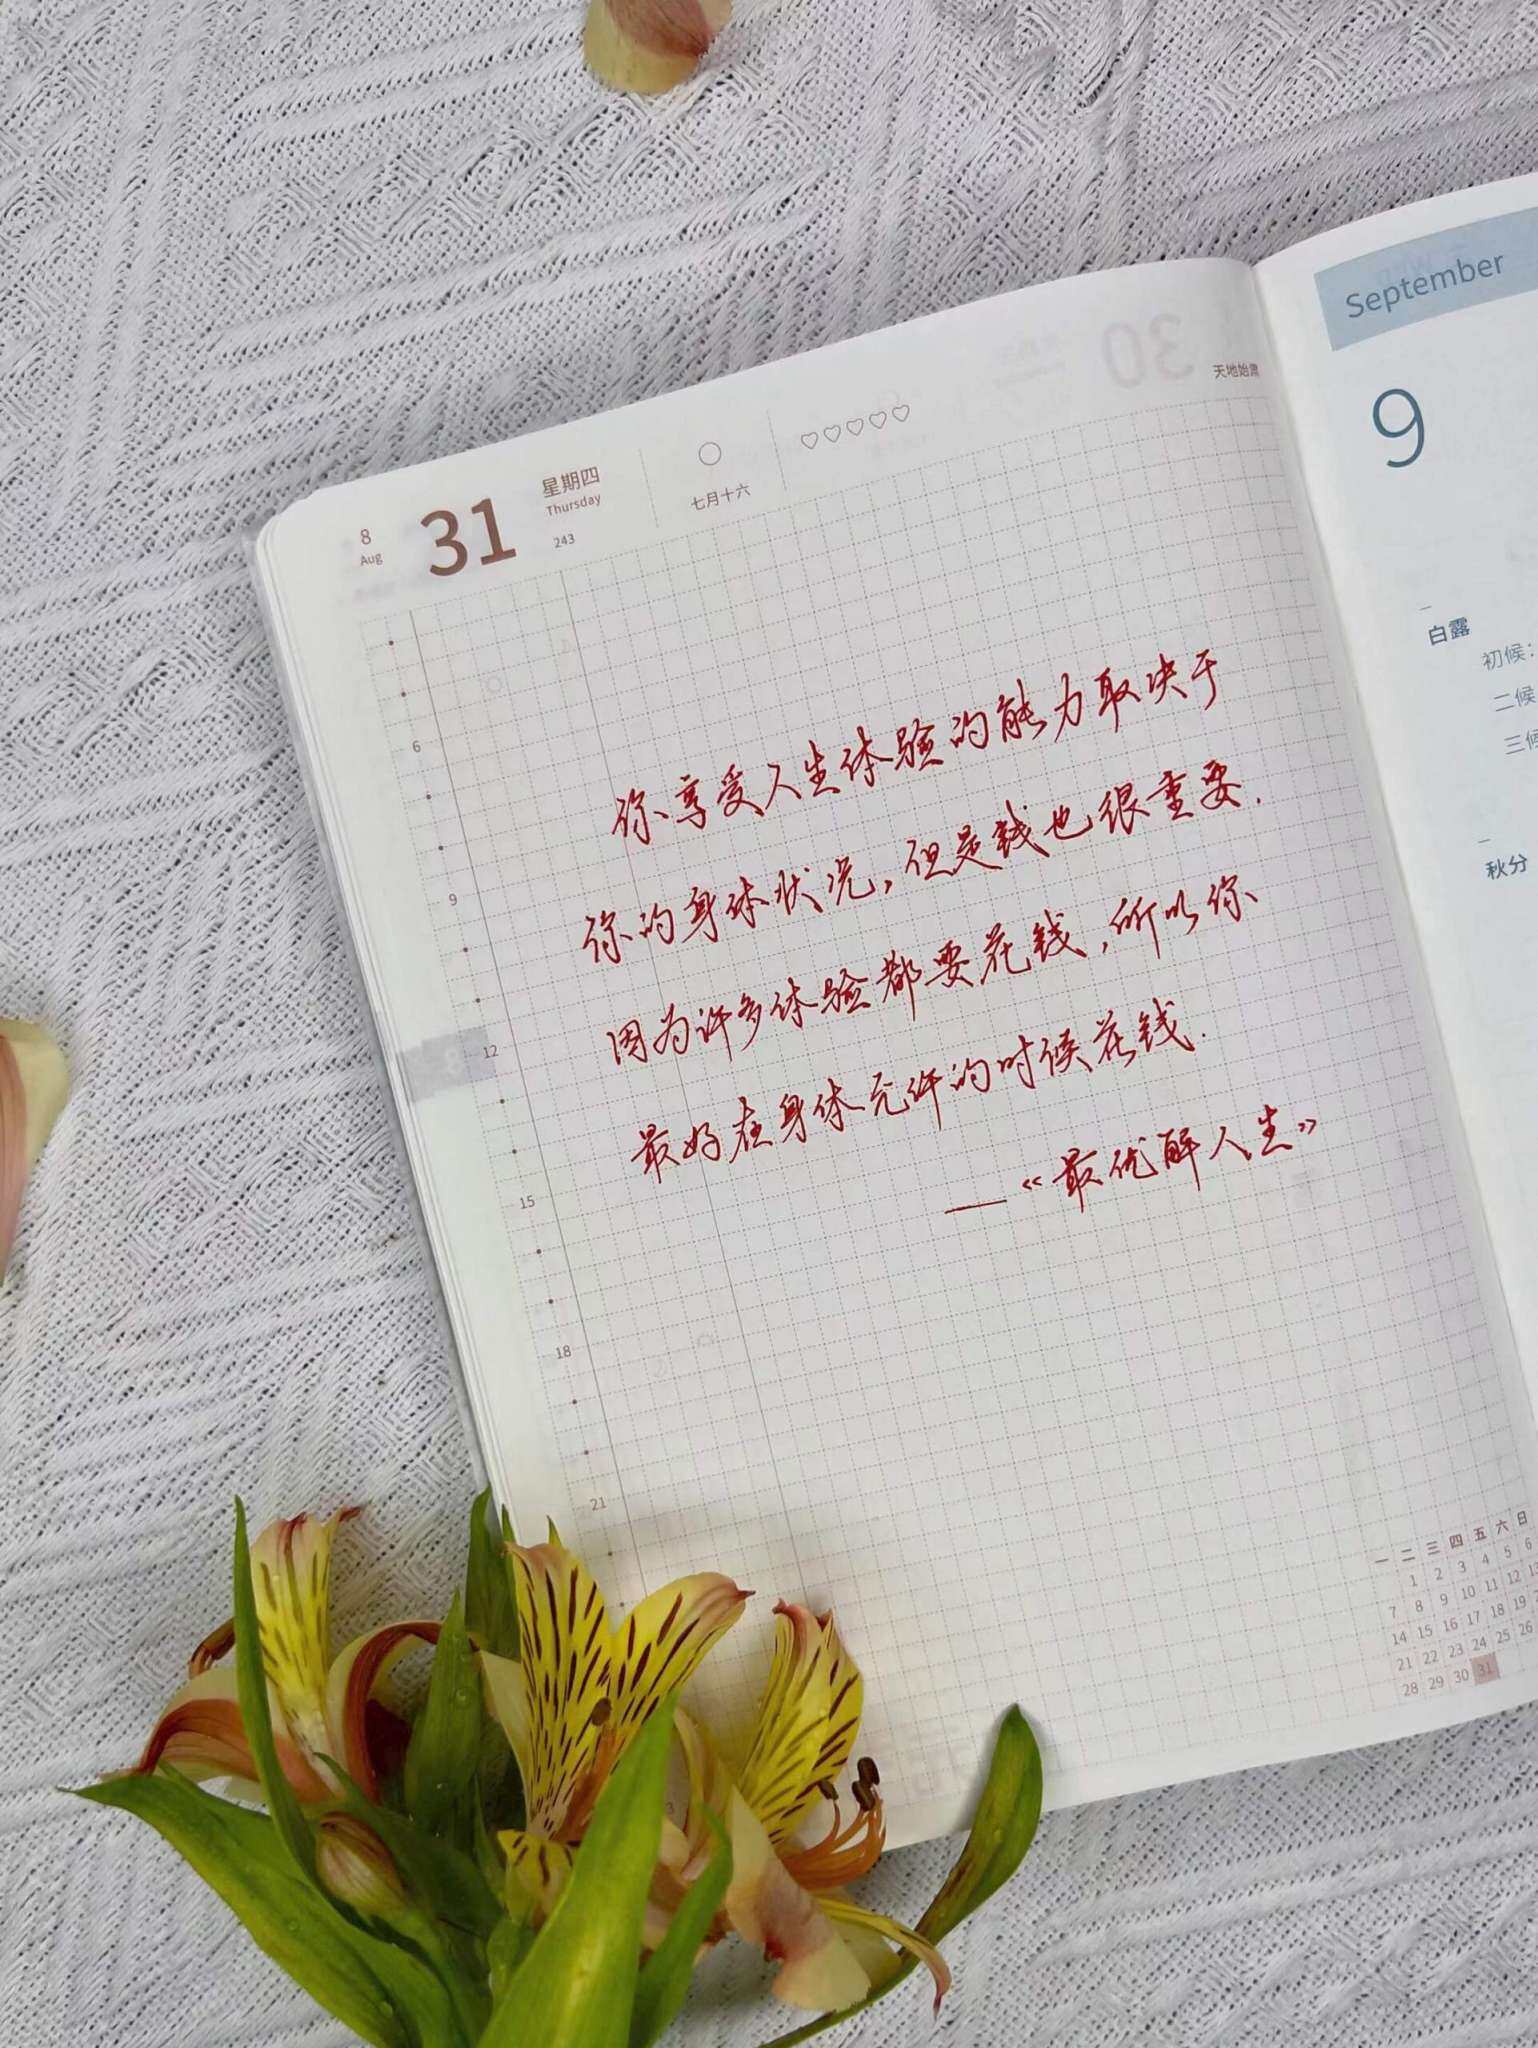 September
30
天地始肃
9
8
Aug
31
星期四
Thursday
243
七月十六
白露
初候：
二候
三候
秋分
6
9
12
15
18
21
你享受人生体验的能力取决于
你的身体状况，但是钱也很重要.
因为许多体验都要花钱，所以你
最好在身体允许的时候花钱.
——《最优解人生》
一 二 三 四 五 六 日
1 2 3 4 5 6
7 8 9 10 11 12 13
14 15 16 17 18 19
21 22 23 24 25 26
28 29 30 31